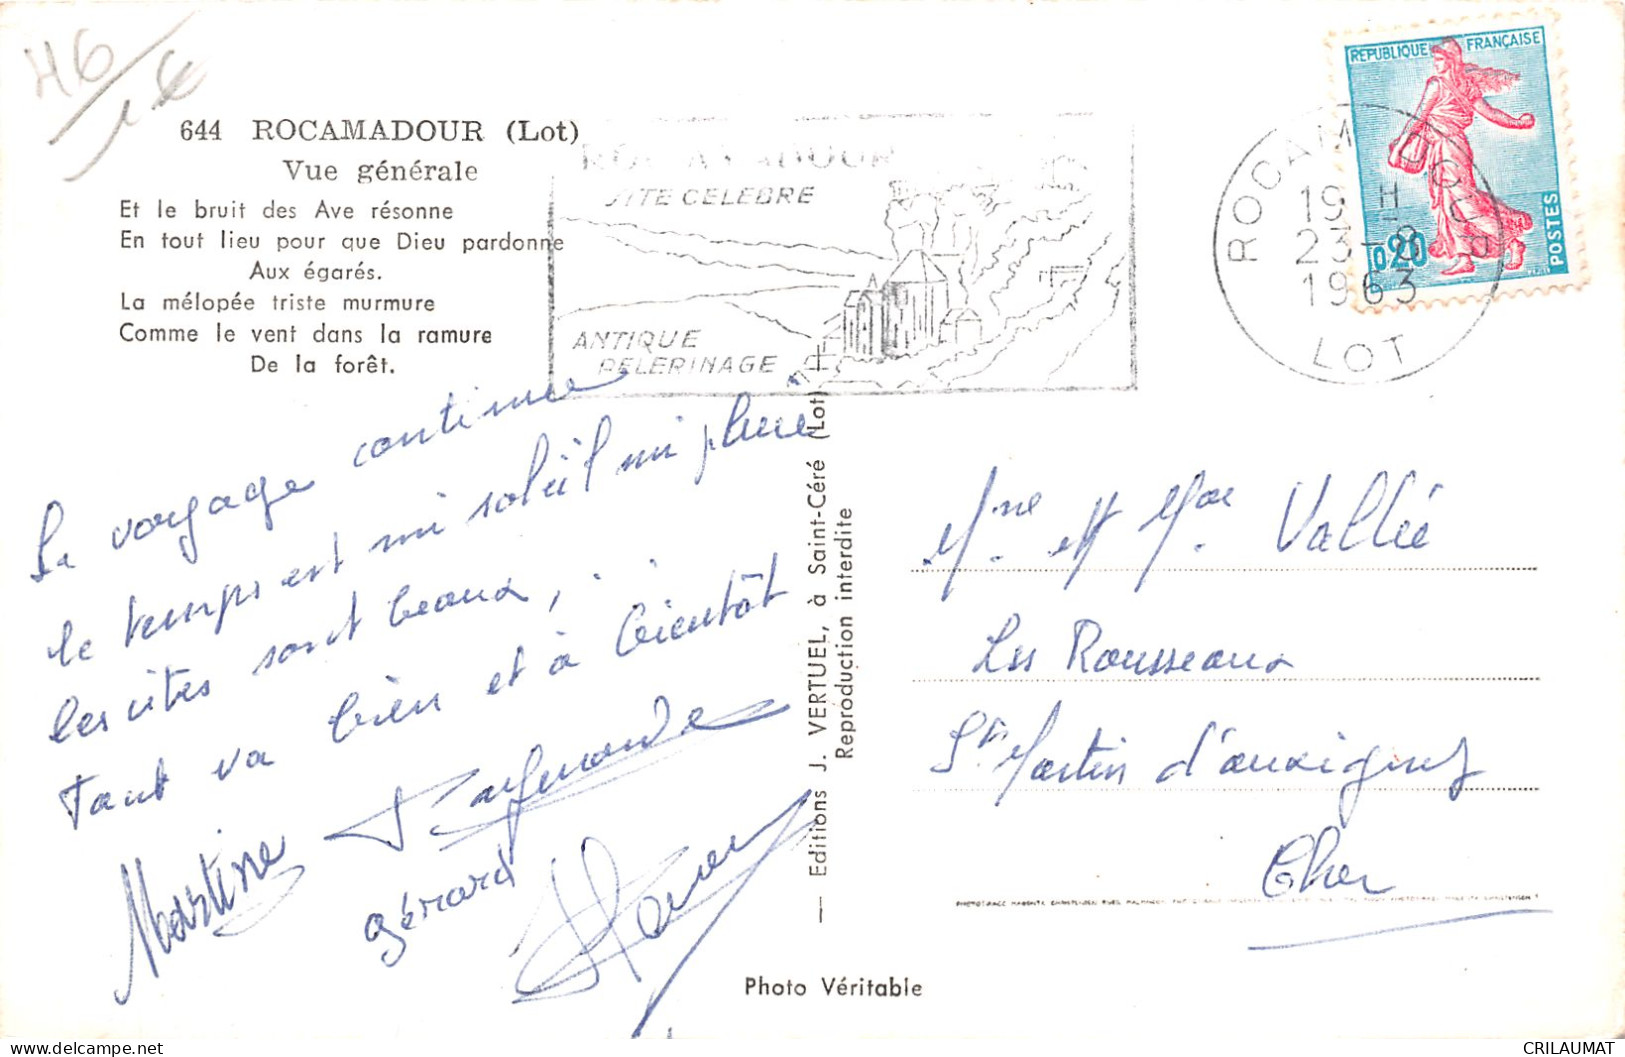 46
1€
644 ROCAMADOUR (Lot)
Vue générale
Et le bruit des Ave résonne
En tout lieu pour que Dieu pardonne
Aux égarés.
La mélopée triste murmure
Comme le vent dans la ramure
De la forêt.
ROCAMADOUR
SITE CELEBRE
ANTIQUE
PELERINAGE
REPUBLIQUE FRANÇAISE
0,20
POSTES
ROCAMADOUR
19 H
23-8
1963
LOT
Le voyage continue
le temps est mi soleil mi pluie
les sites sont beaux,
tout va bien et à bientôt
Raymonde
Martine
Gérard
— Editions J. VERTUEL, à Saint-Céré (Lot)
Reproduction interdite
Photo Véritable
Mme et Mr Vallée
Les Rousseaux
St Martin d'auxigny
Cher